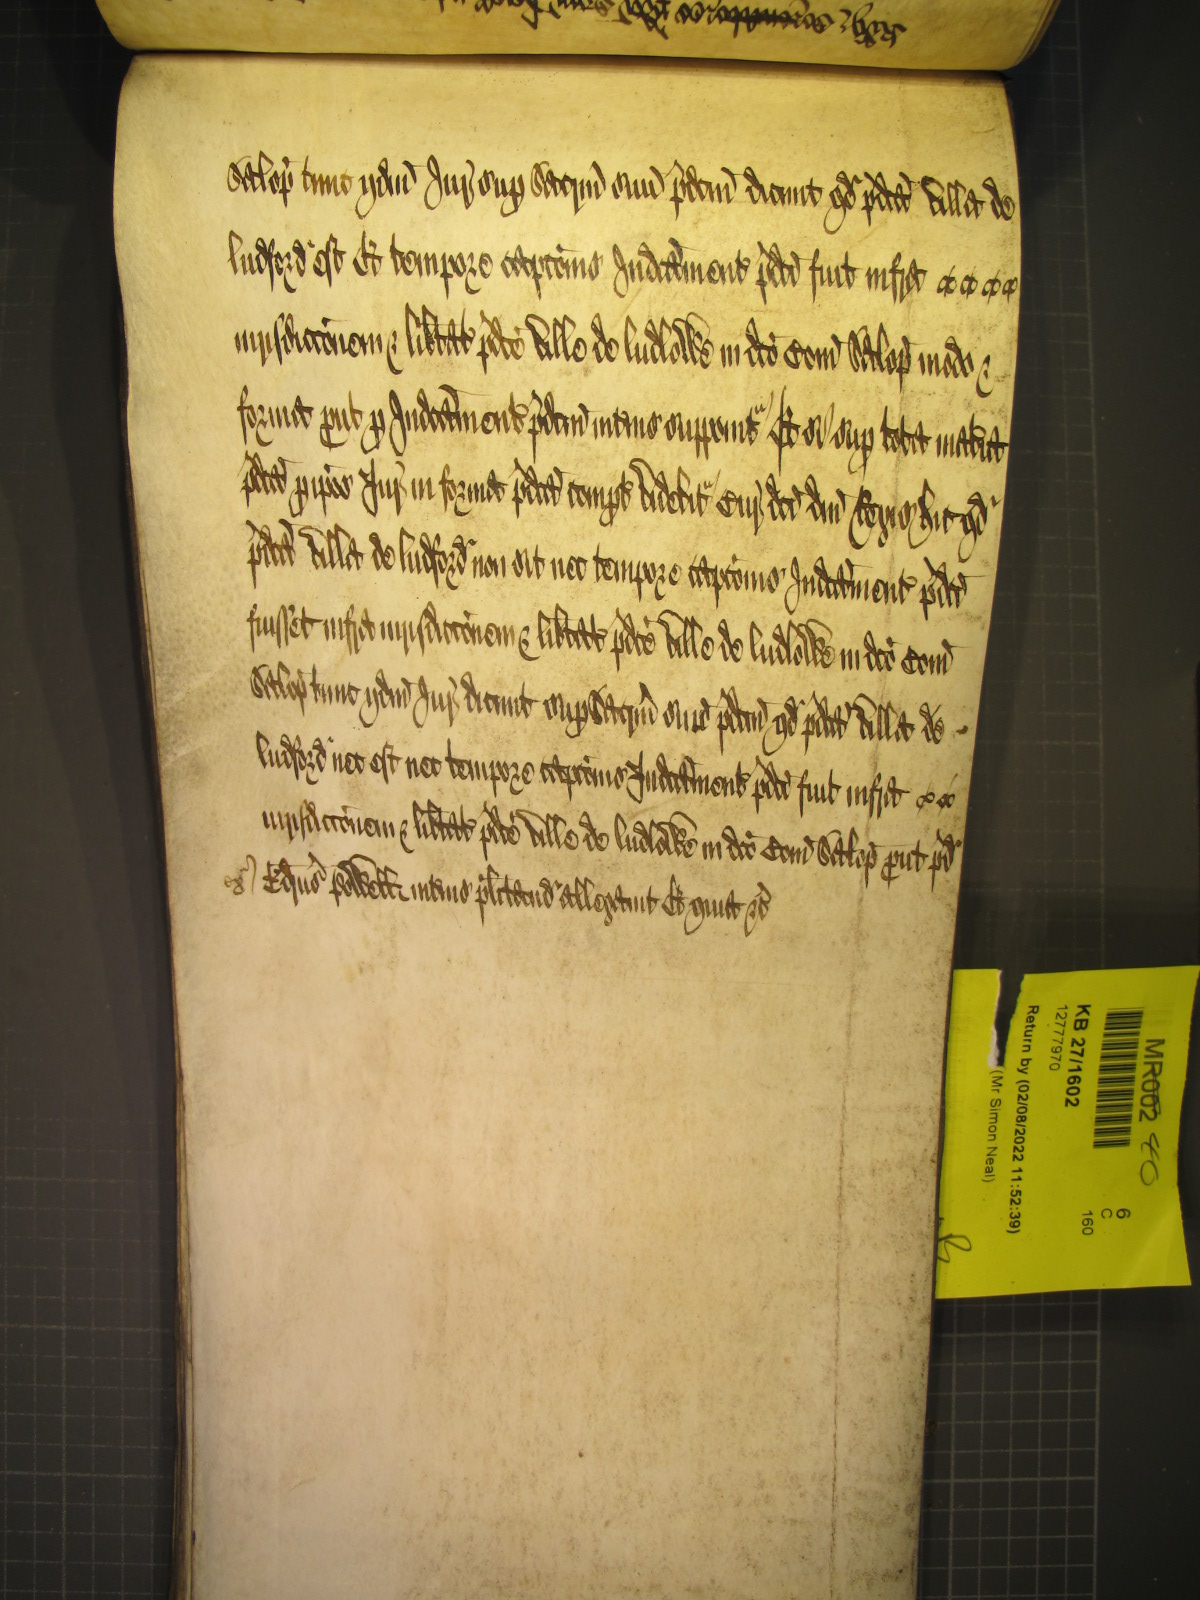 Salop̄ tunc ijdm̄ Jur̄ sup Sacrm̄ suu̅ p̄dcm̄ dicunt qd̄ p̄dcā villa de
ludford est Et tempore capc̄onis Indictament̄ p̄dcī fuit infra
iurisdicc̄onem & lib̄tat̄ p̄dcē ville de ludlowe in dcō Com̄ Salop̄ modo &
forma put p Indictament̄ p̄dcm̄ interius supponit̄ Et si sup tota mater̄ia
p̄dcā p ip̄os Jur̄ in forma p̄dcā comp̄t videbit̄ Cur̄ dcī dn̄i Regis hic qd̄
p̄dcā villa de ludford non sit nec tempore capc̄onis Indictament̄ p̄dcī
fuisset infra iurisdicc̄onem & lib̄tat̄ p̄dcē ville de ludlowe in dcō Com̄
Salop̄ tunc ijdm̄ Jur̄ dicunt sup Sacrm̄ suū p̄dcm̄ qd̄ p̄dcā villa de
ludford nec est nec tempore capc̄onis Indictament̄ p̄dcī fuit infra
iurisdicc̄onem & lib̄tat̄ p̄dcē ville de ludlowe in dcō Com̄ Salop̄ put p̄d
Powell interius pl̄itand allegavit Et quia &c̄
MR002 40
6
C
160
KB 27/1602
12777970
Return by (02/08/2022 11:52:39)
(Mr Simon Neal)